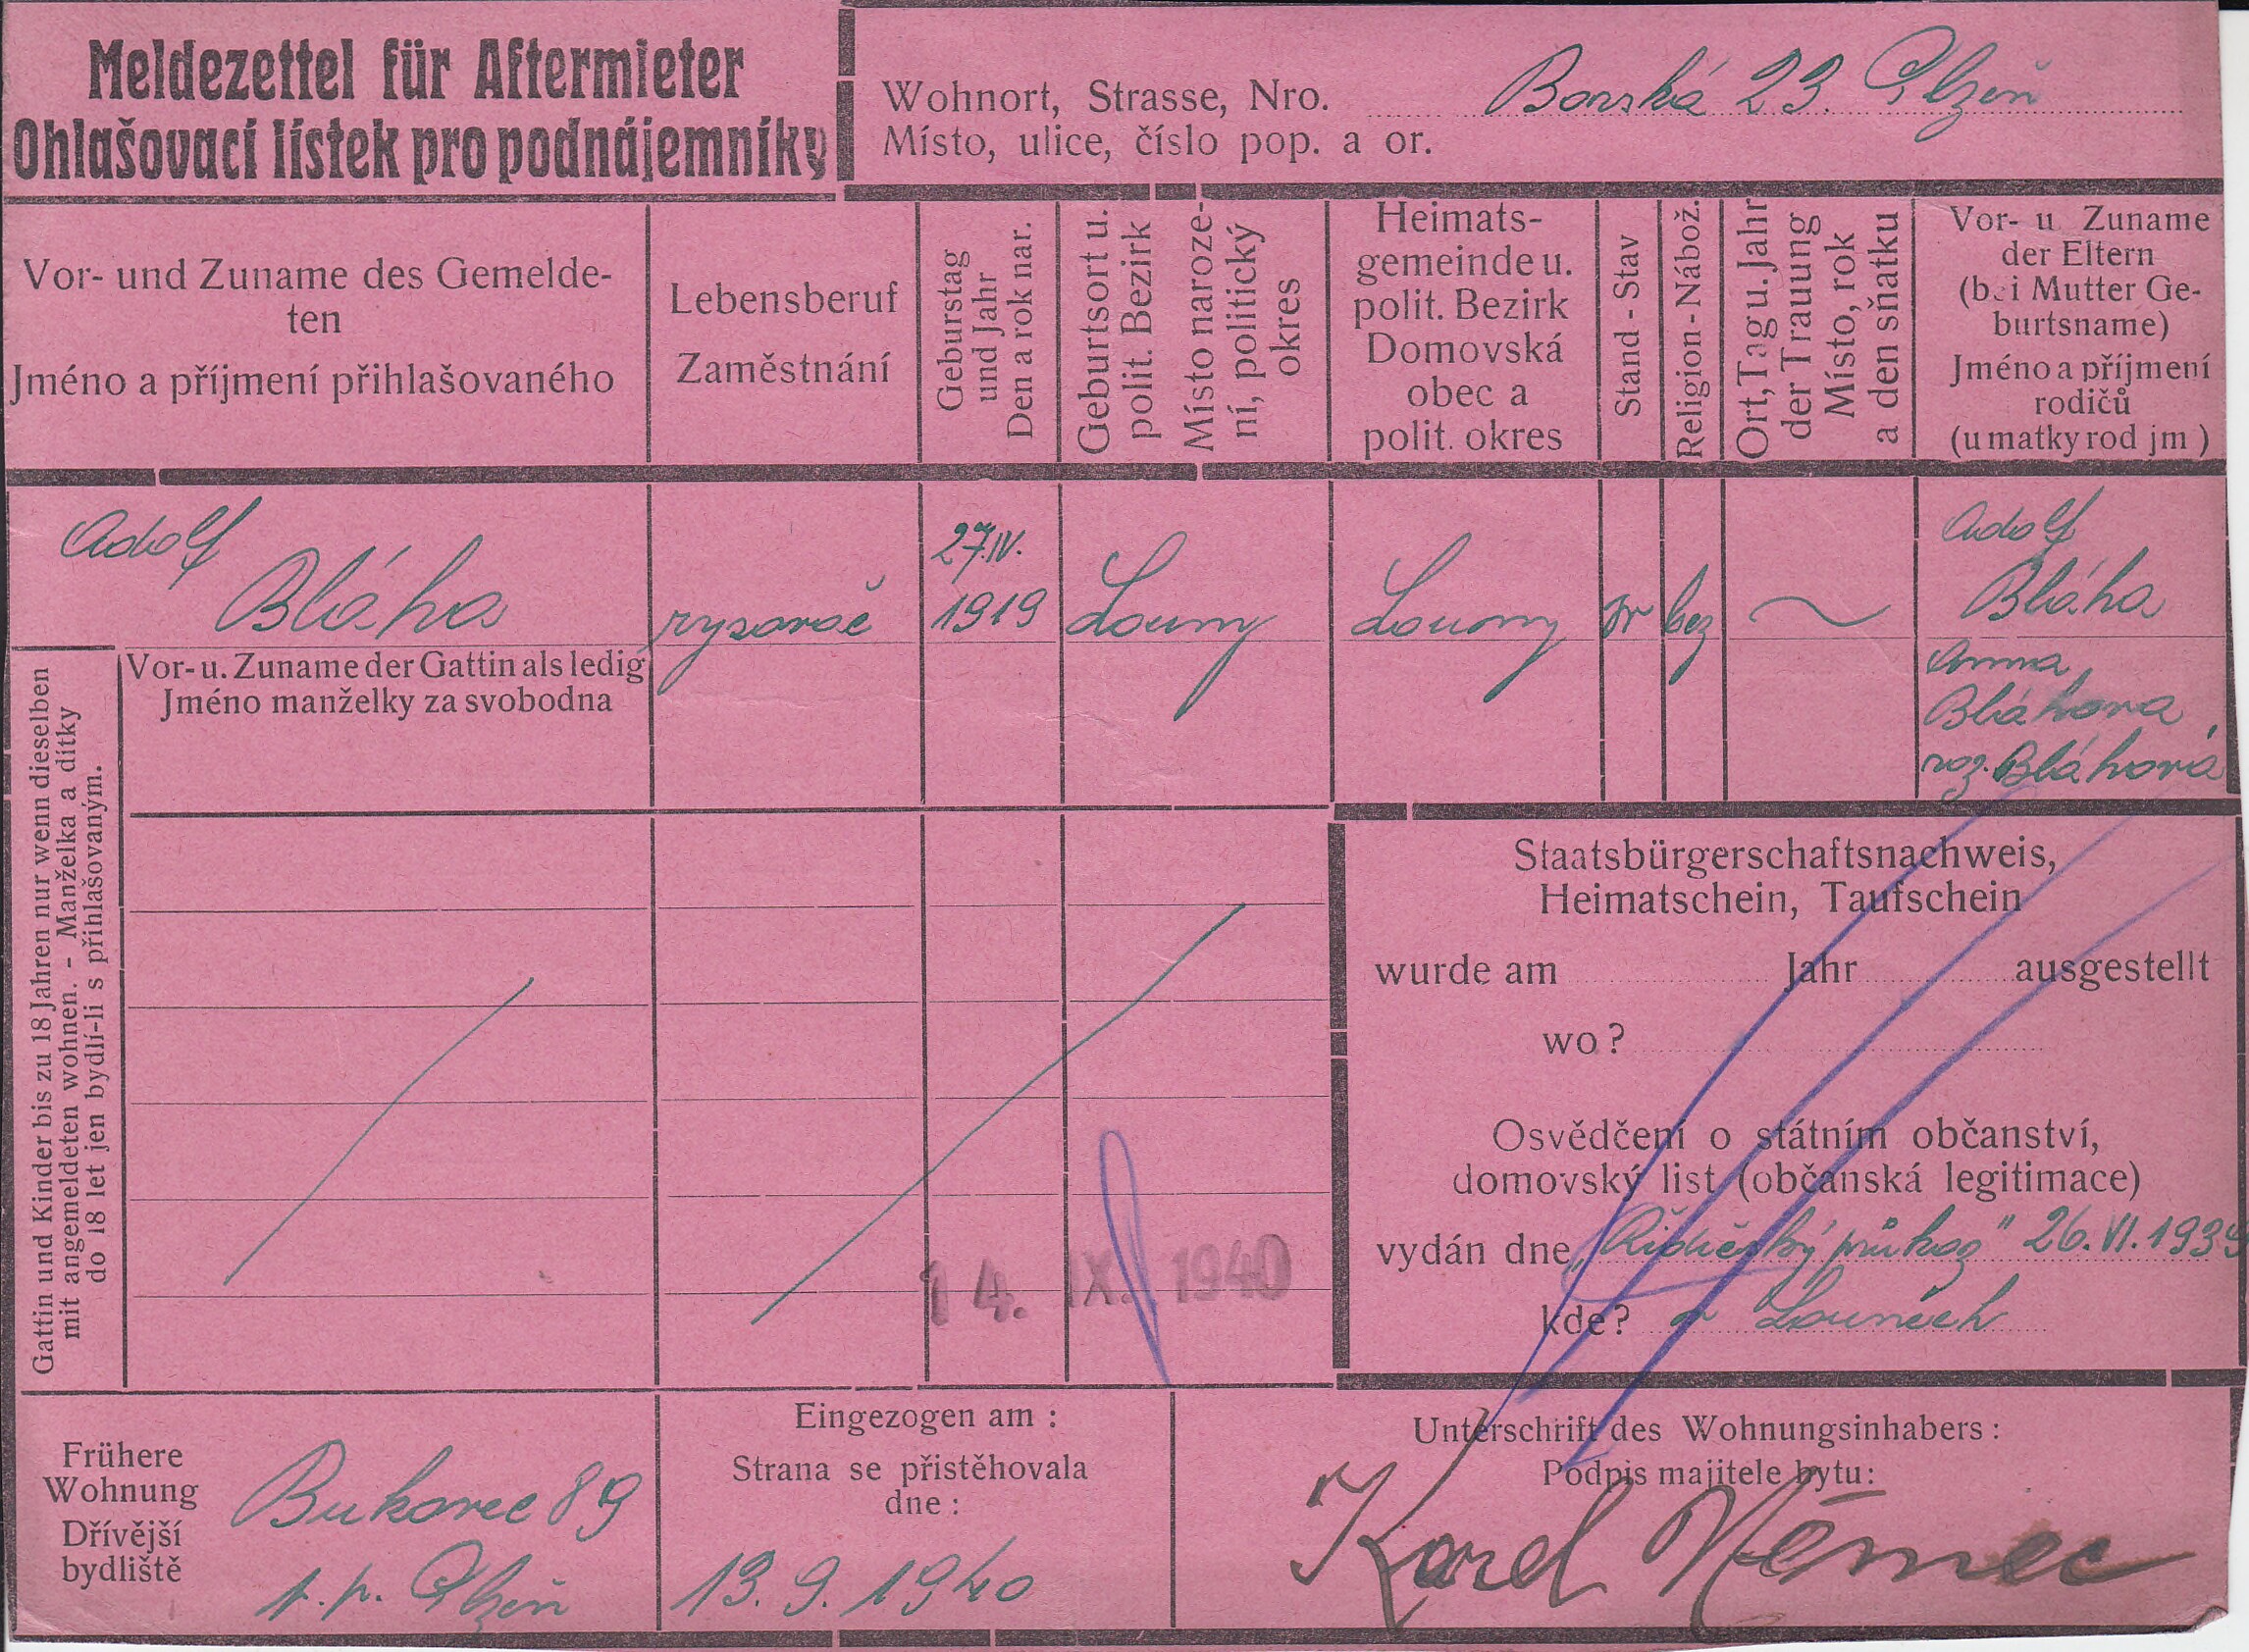 Meldezettel für Aftermieter
Ohlašovací lístek pro podnájemníky
Wohnort, Strasse, Nro.
Místo, ulice, číslo pop. a or.
Borská 23. Plzeň
Vor- und Zuname des Gemelde-
ten
Jméno a příjmení přihlašovaného
Lebensberuf
Zaměstnání
Geburstag
und Jahr
Den a rok nar.
Geburtsort u.
polit. Bezirk
Místo naroze-
ní, politický
okres
Heimats-
gemeinde u.
polit. Bezirk
Domovská
obec a
polit. okres
Stand - Stav
Religion - Nábož.
Ort, Tag u. Jahr
der Trauung
Místo, rok
a den sňatku
Vor- u Zuname
der Eltern
(bei Mutter Ge-
burtsname)
Jméno a příjmení
rodičů
(u matky rod jm )
Adolf
Bláha
rysovač
27.IV.
1919
Louny
Louny
bez
Adolf
Bláha
Anna
Bláhova
roz. Bláhová
Vor- u. Zuname der Gattin als ledig
Jméno manželky za svobodna
Gattin und Kinder bis zu 18 Jahren nur wenn dieselben
mit angemeldeten wohnen. - Manželka a dítky
do 18 let jen bydlí-li s přihlašovaným.
14. IX. 1940
Staatsbürgerschaftsnachweis,
Heimatschein, Taufschein
wurde am Jahr ausgestellt
wo?
Osvědčení o státním občanství,
domovský list (občanská legitimace)
vydán dne „Řidičský průkaz" 26. VI. 1939
kde? v Lounech
Frühere
Wohnung
Dřívější
bydliště
Bukovec 89
p. p. Plzeň
Eingezogen am :
Strana se přistěhovala
dne :
13. 9. 1940
Unterschrift des Wohnungsinhabers :
Podpis majitele bytu:
Karel Němec